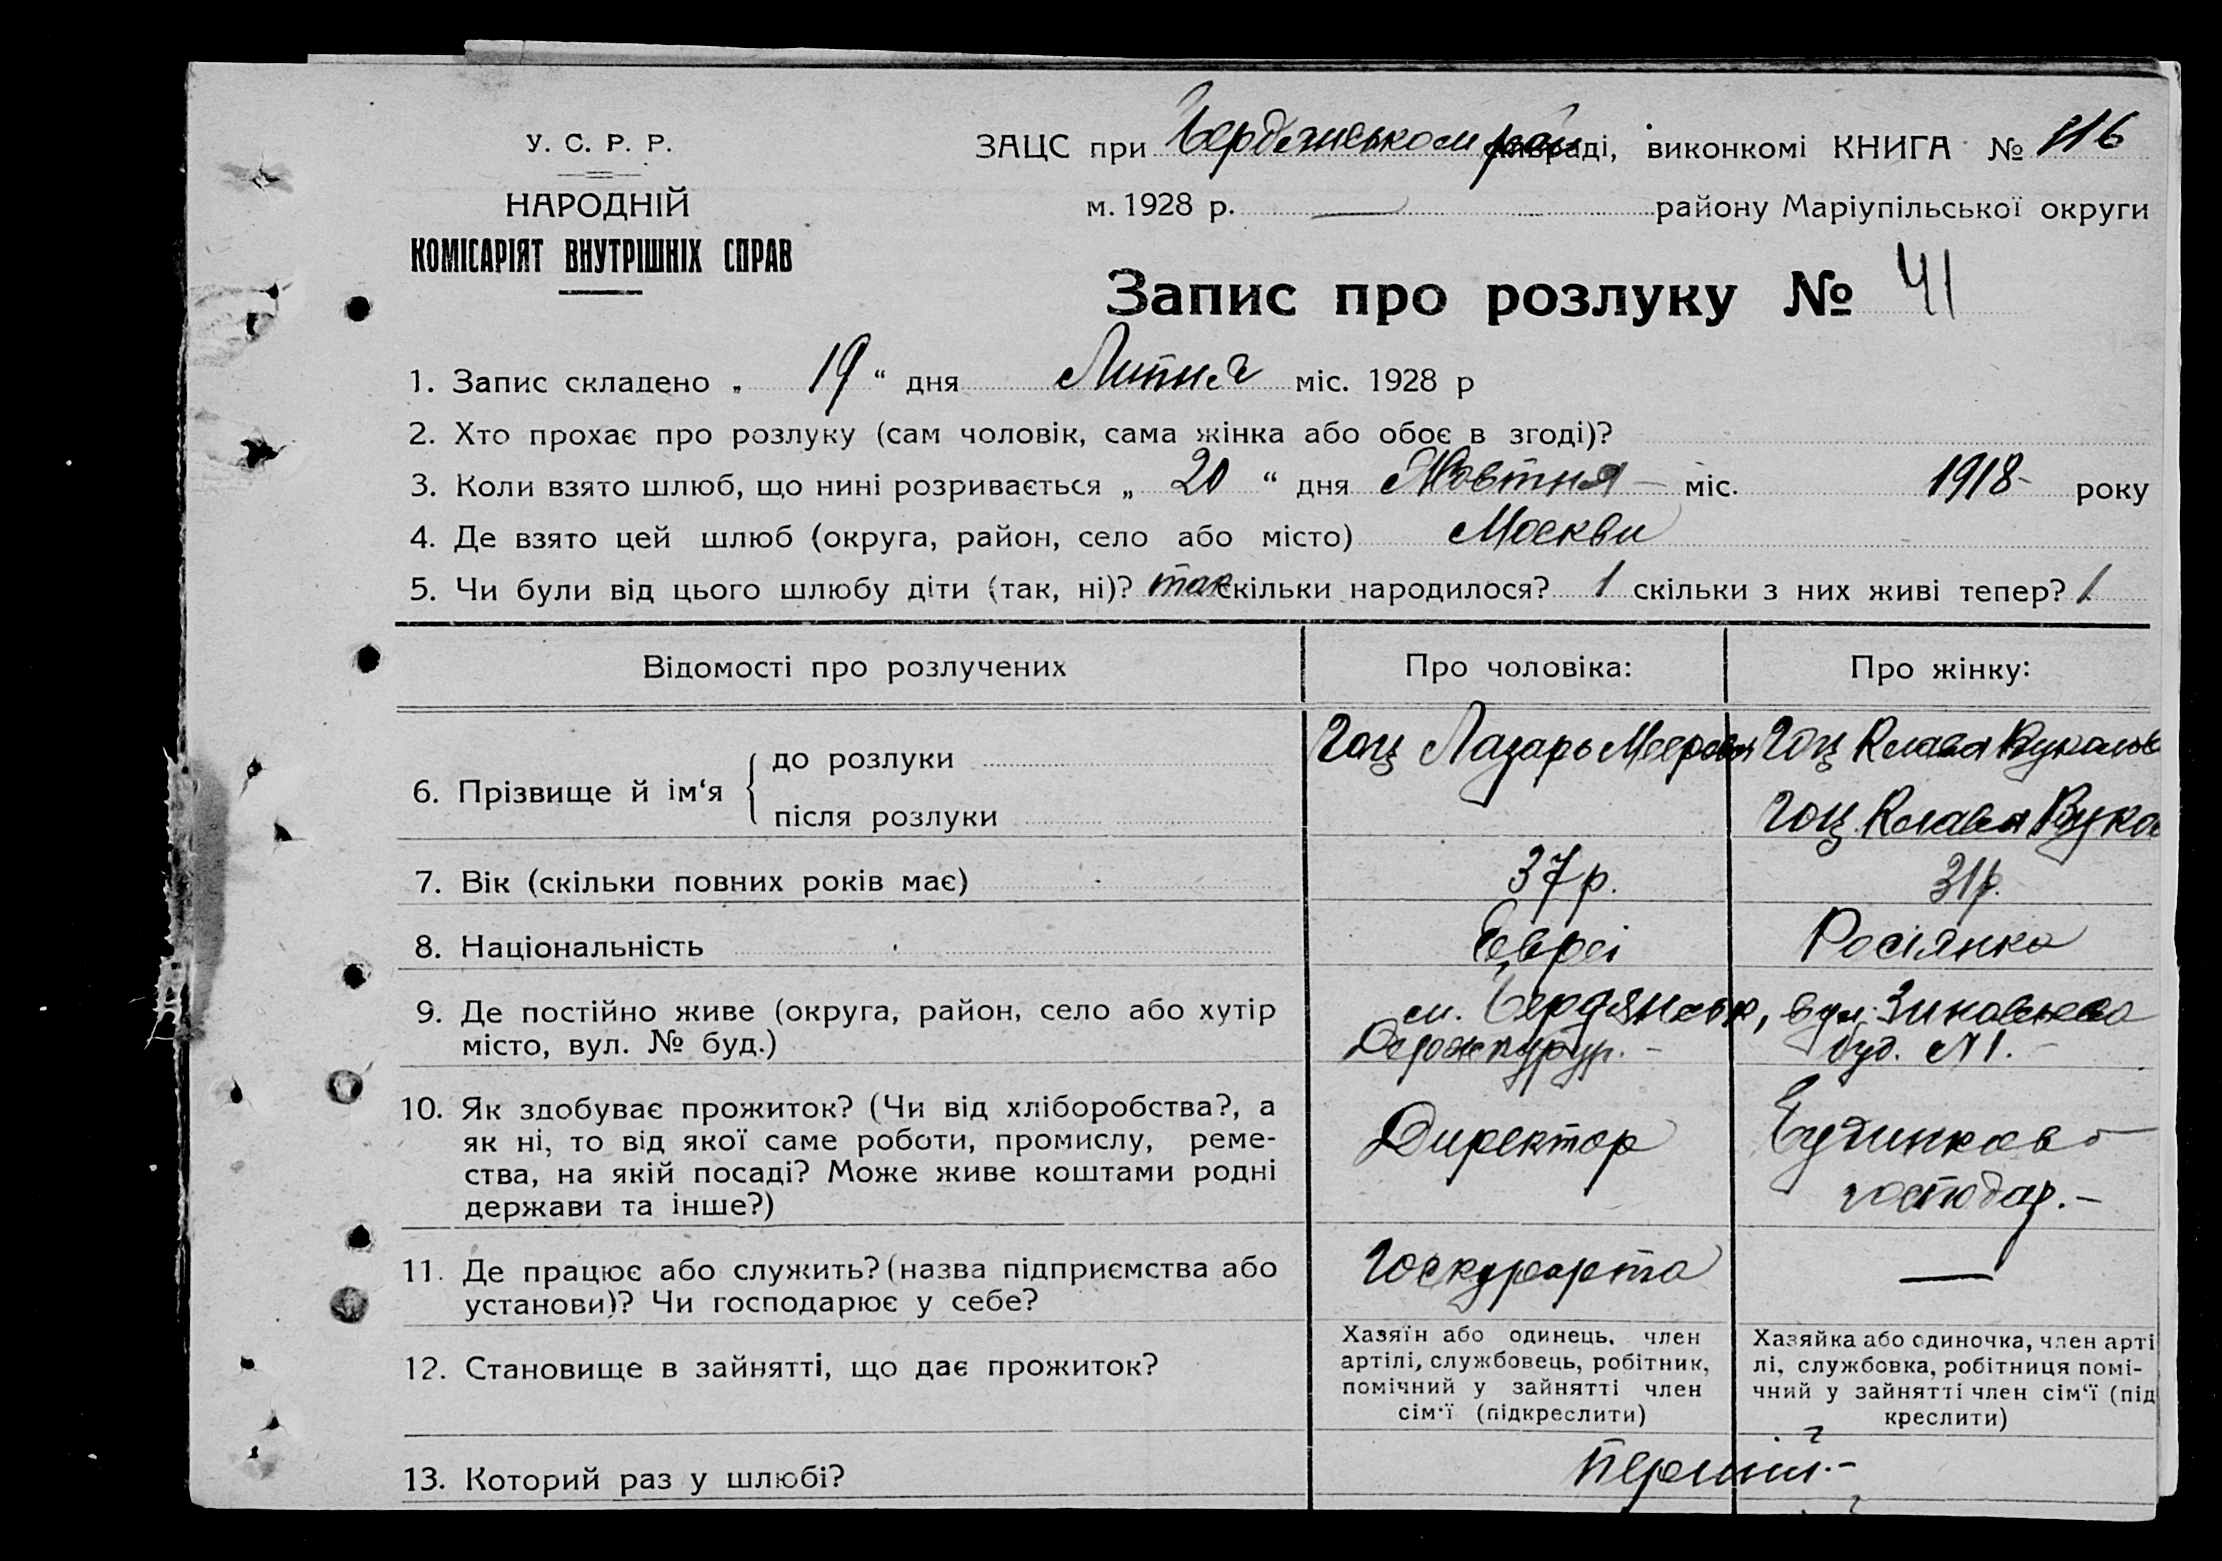 У. С. Р. Р.
НАРОДНІЙ
КОМІСАРІЯТ ВНУТРІШНІХ СПРАВ
ЗАЦС при Бердянському раді, виконкомі КНИГА № 116
м. 1928 р. — району Маріупільської округи
Запис про розлуку № 41
1. Запис складено „ 19 “ дня Липня міс. 1928 р
2. Хто прохає про розлуку (сам чоловік, сама жінка або обоє в згоді)?
3. Коли взято шлюб, що нині розривається „ 20 “ дня Жовтня – міс. 1918 - року
4. Де взято цей шлюб (округа, район, село або місто) Москви
5. Чи були від цього шлюбу діти (так, ні)? так скільки народилося? 1 скільки з них живі тепер? 1
Відомості про розлучених Про чоловіка: Про жінку:
6. Прізвище й ім‘я
до розлуки Гоц Лазарь Меерович Гоц Клавдія
після розлуки Гоц
7. Вік (скільки повних років має) 37 р. 31 р.
8. Національність Єврei Росіянка
9. Де постійно живе (округа, район, село або хутір місто, вул. № буд.)
м. Бердянськ, вул. Зиновьева
буд. № 1. –
10. Як здобуває прожиток? (Чи від хліборобства?, а
як ні, то від якої саме роботи, промислу, реме-
ства, на якій посаді? Може живе коштами родні
держави та інше?)
Директор
господар. –
11. Де працює або служить? (назва підприємства або
установи)? Чи господарює у себе?
Госкурорта —
12. Становище в зайнятті, що дає прожиток?
Хазяїн або одинець, член
артілі, службовець, робітник,
помічний у зайнятті член
сім‘ї (підкреслити)
Хазяйка або одиночка, член арті
лі, службовка, робітниця помі-
чний у зайнятті член сім‘ї (під
креслити)
13. Которий раз у шлюбі? перший. –